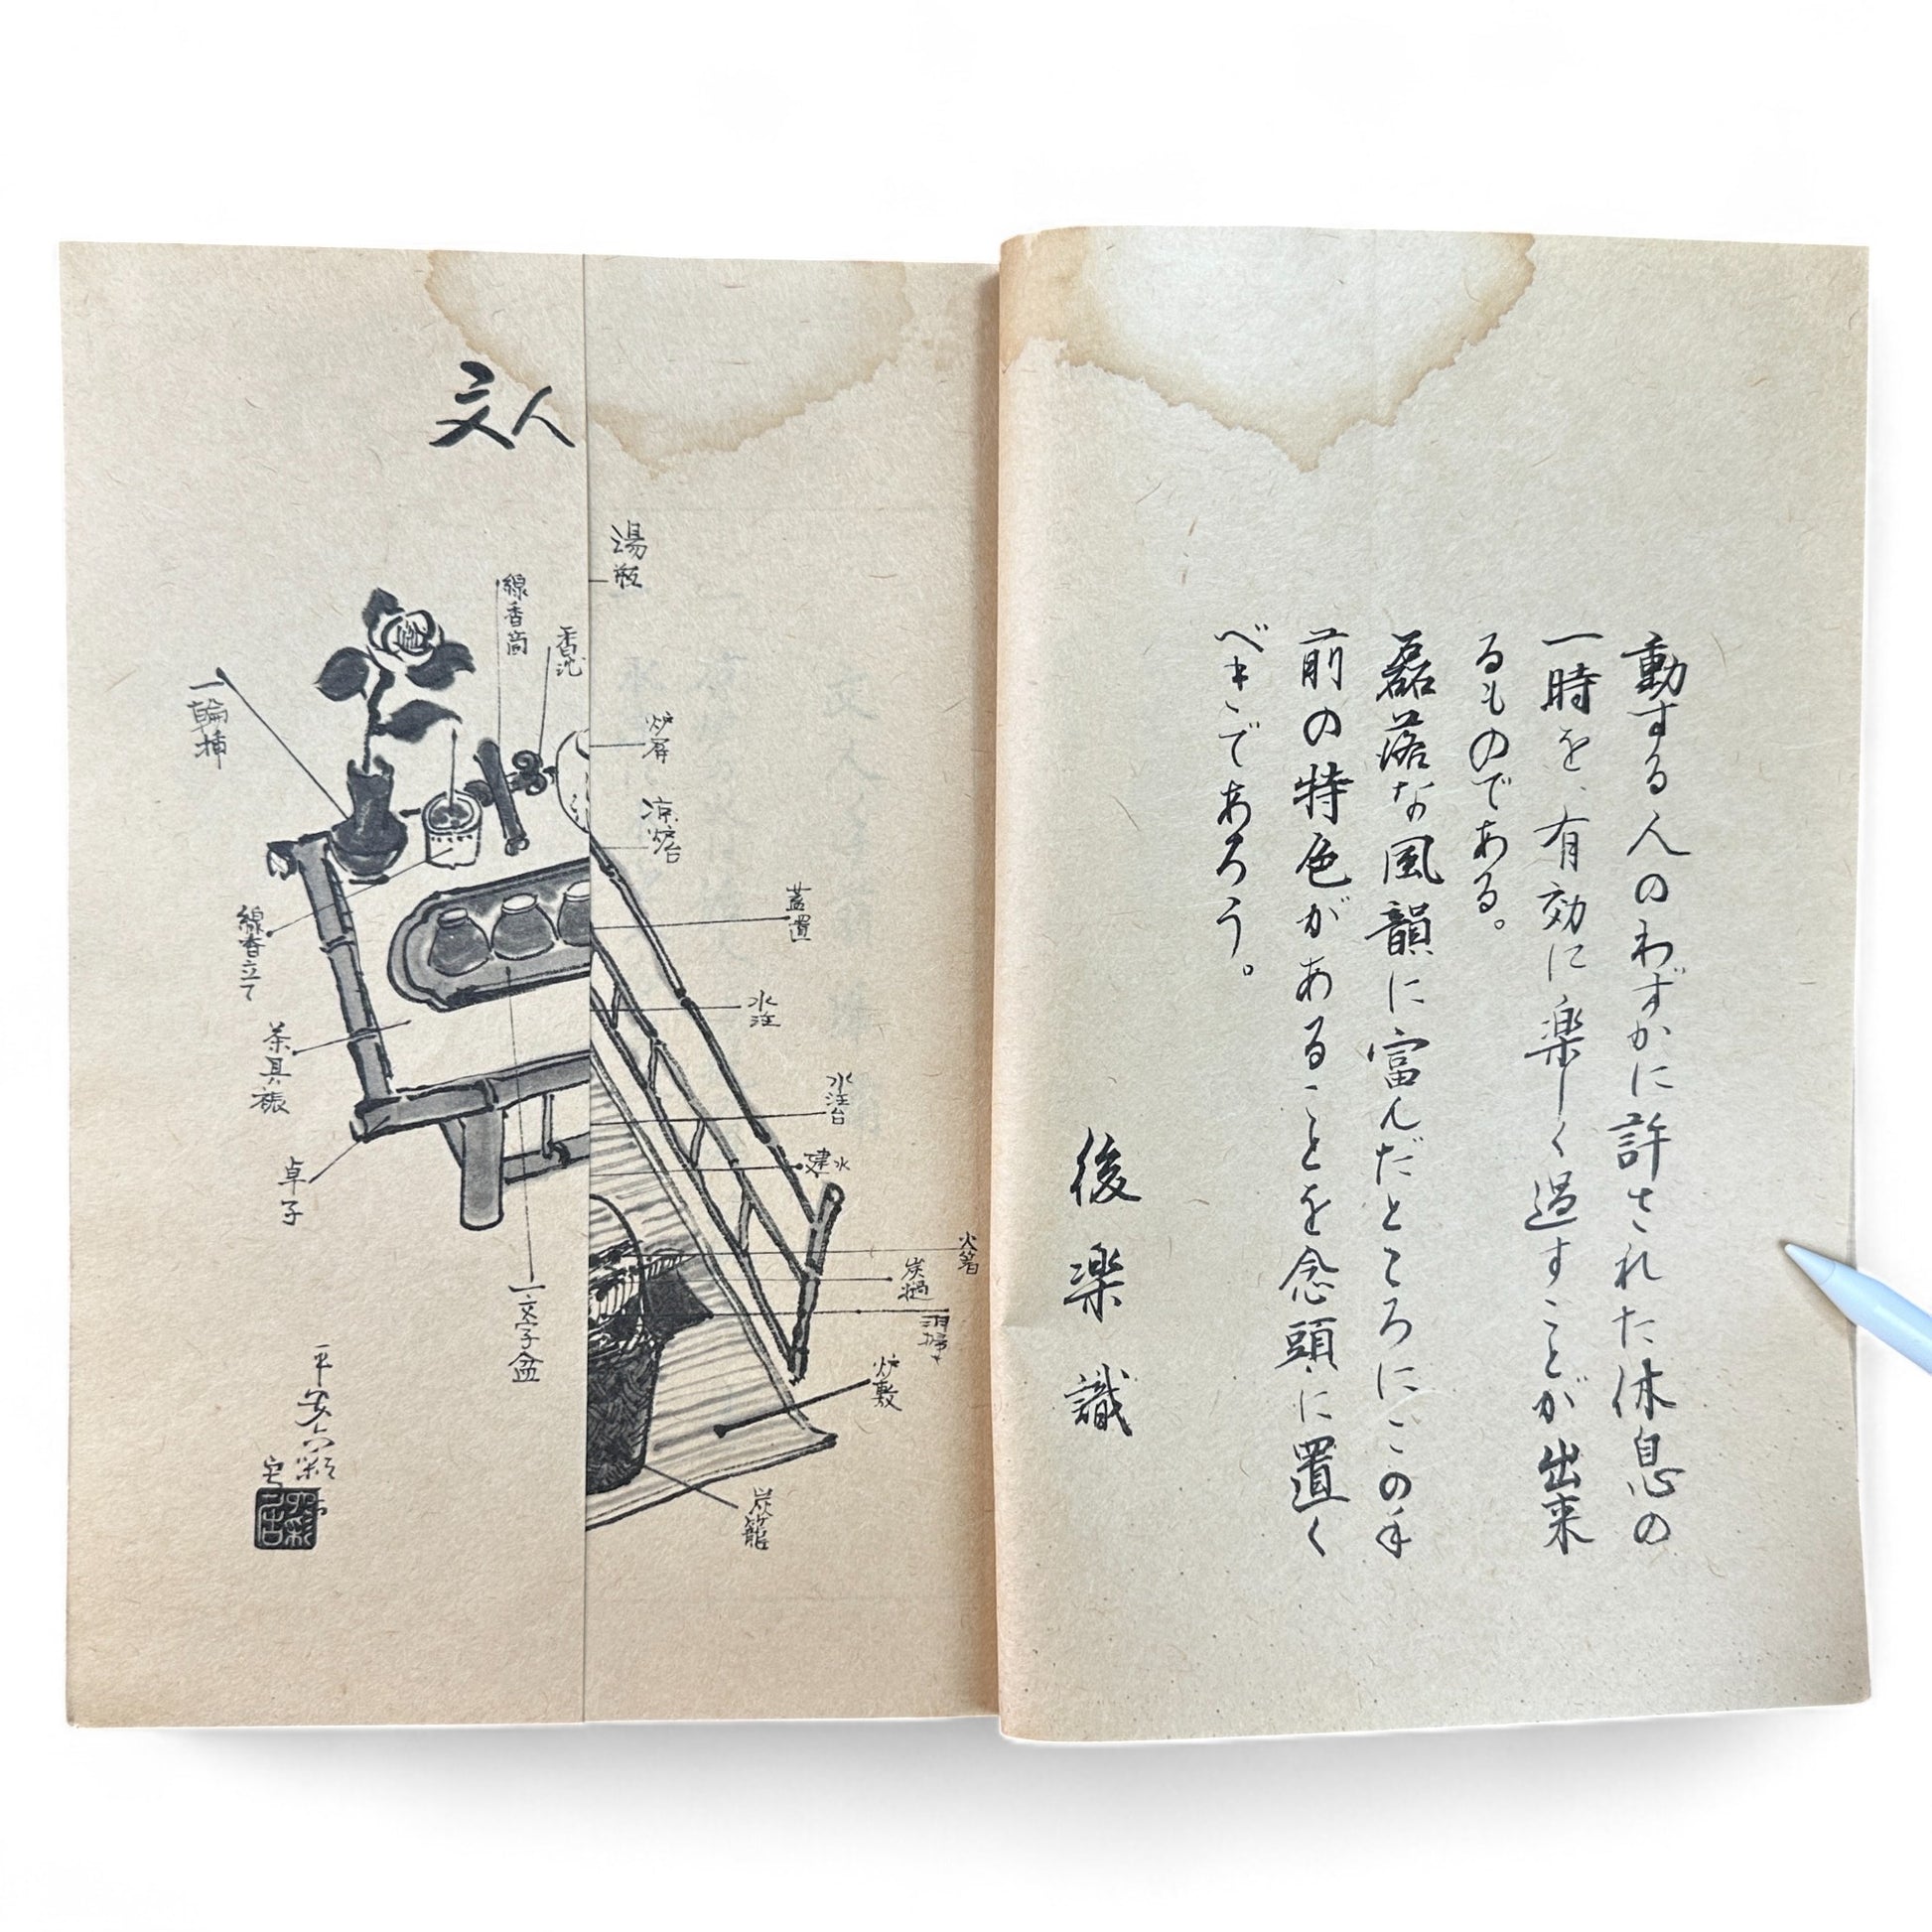 動する人のわずかに許された休息の
一時を、有効に楽しく過すことが出来
るものである。
磊落な風韻に富んだところにこの手
前の特色があることを念頭に置く
べきであろう。
後楽識
文人
湯瓶
炉屏
涼炉台
蓋置
水注
水注台
建水
火箸
炭撾
羽箒
炉敷
炭籠
線香筒
一輪挿
線香立て
茶具褥
卓子
一文字盆
平安